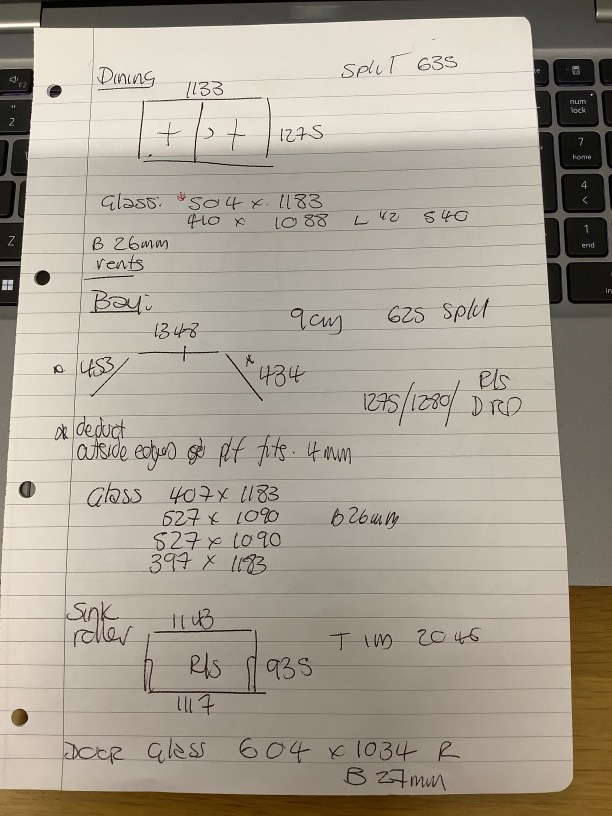 Dining
Split 635
1133
1275
Glass: *504 x 1183
410 x 1088 L 42 540
B 26mm
vents
Bay:
1348
9cm 625 split
* 453
* 434
1275/1280/ R/s
DRD
* deduct
outside edges so p/f fits. 4mm
Glass 407 x 1183
527 x 1090 B26mm
527 x 1090
397 x 1183
Sink
roller
1143
R/s
935
1117
T 2046
DOOR Glass 604 x 1034 R
B 27mm
F2
"
2
Z
num
lock
7
home
4
<
1
end
in